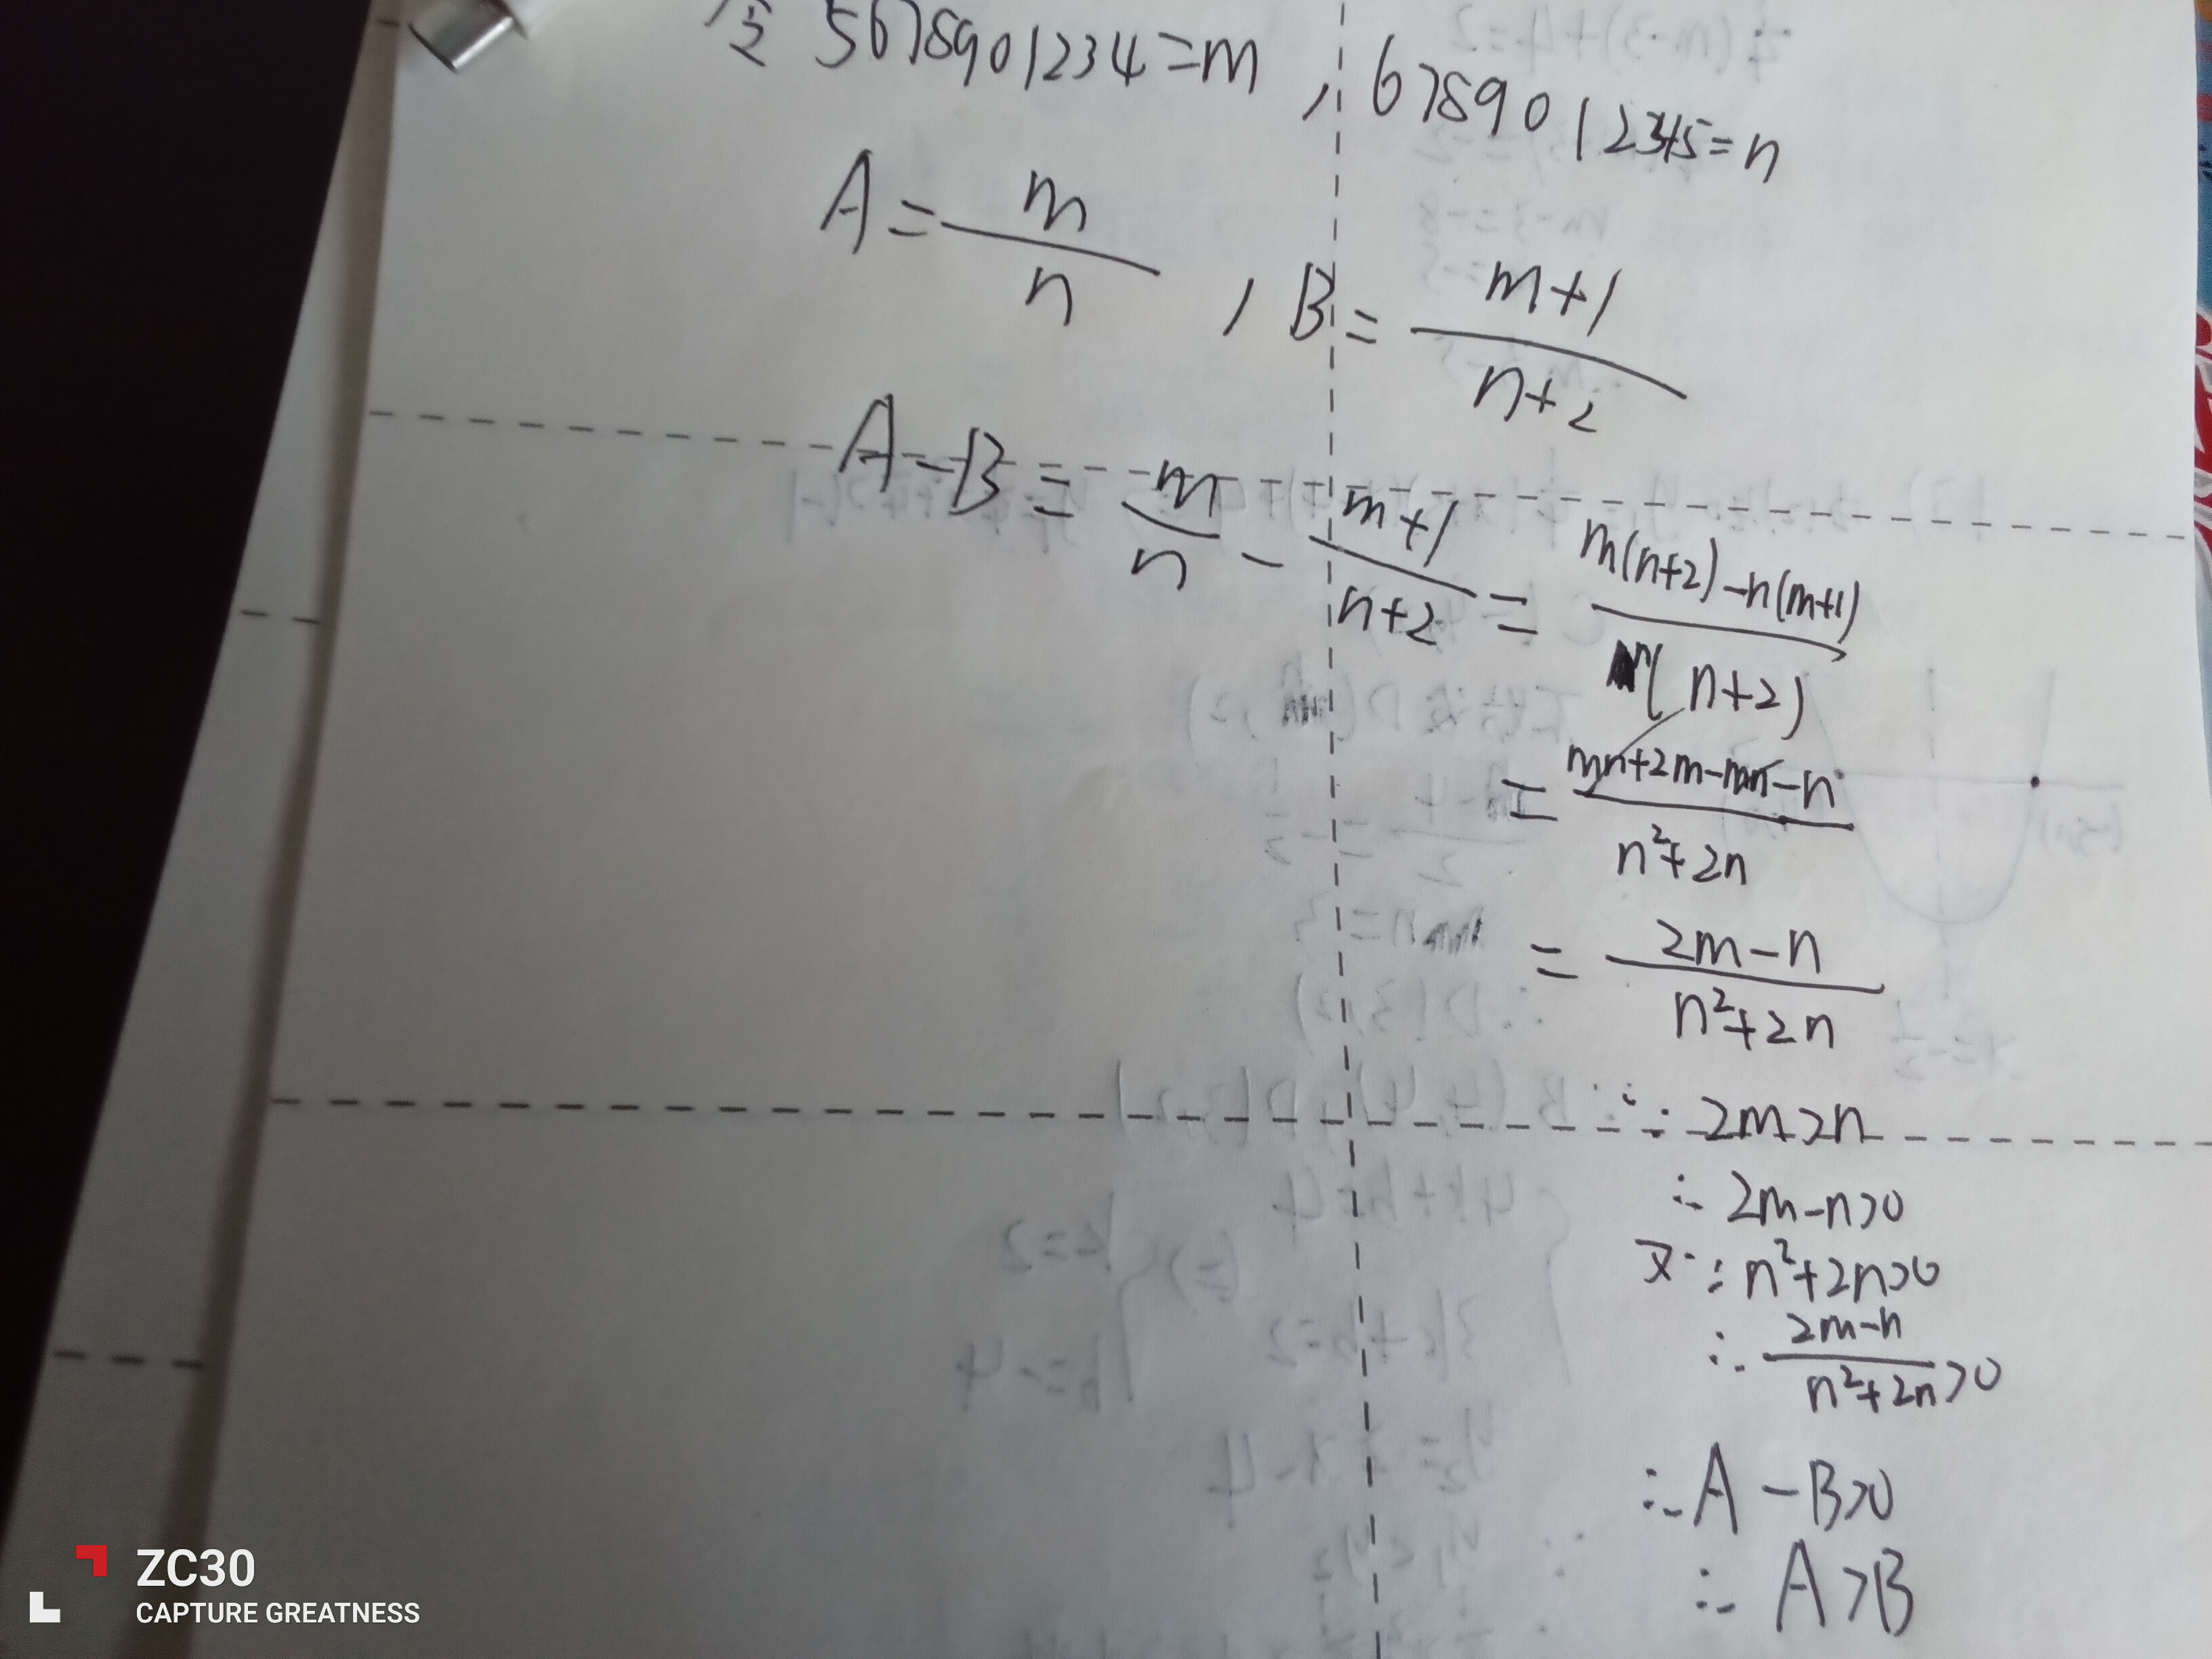 令 5678901234=m , 6789012345=n
A= m/n , B= (m+1)/(n+2)
A-B= m/n - (m+1)/(n+2) = (m(n+2)-n(m+1))/(n(n+2))
= (mn+2m-mn-n)/(n²+2n)
= (2m-n)/(n²+2n)
∵ 2m>n
∴ 2m-n>0
又∵ n²+2n>0
∴ (2m-n)/(n²+2n)>0
∴ A-B>0
∴ A>B
ZC30
CAPTURE GREATNESS